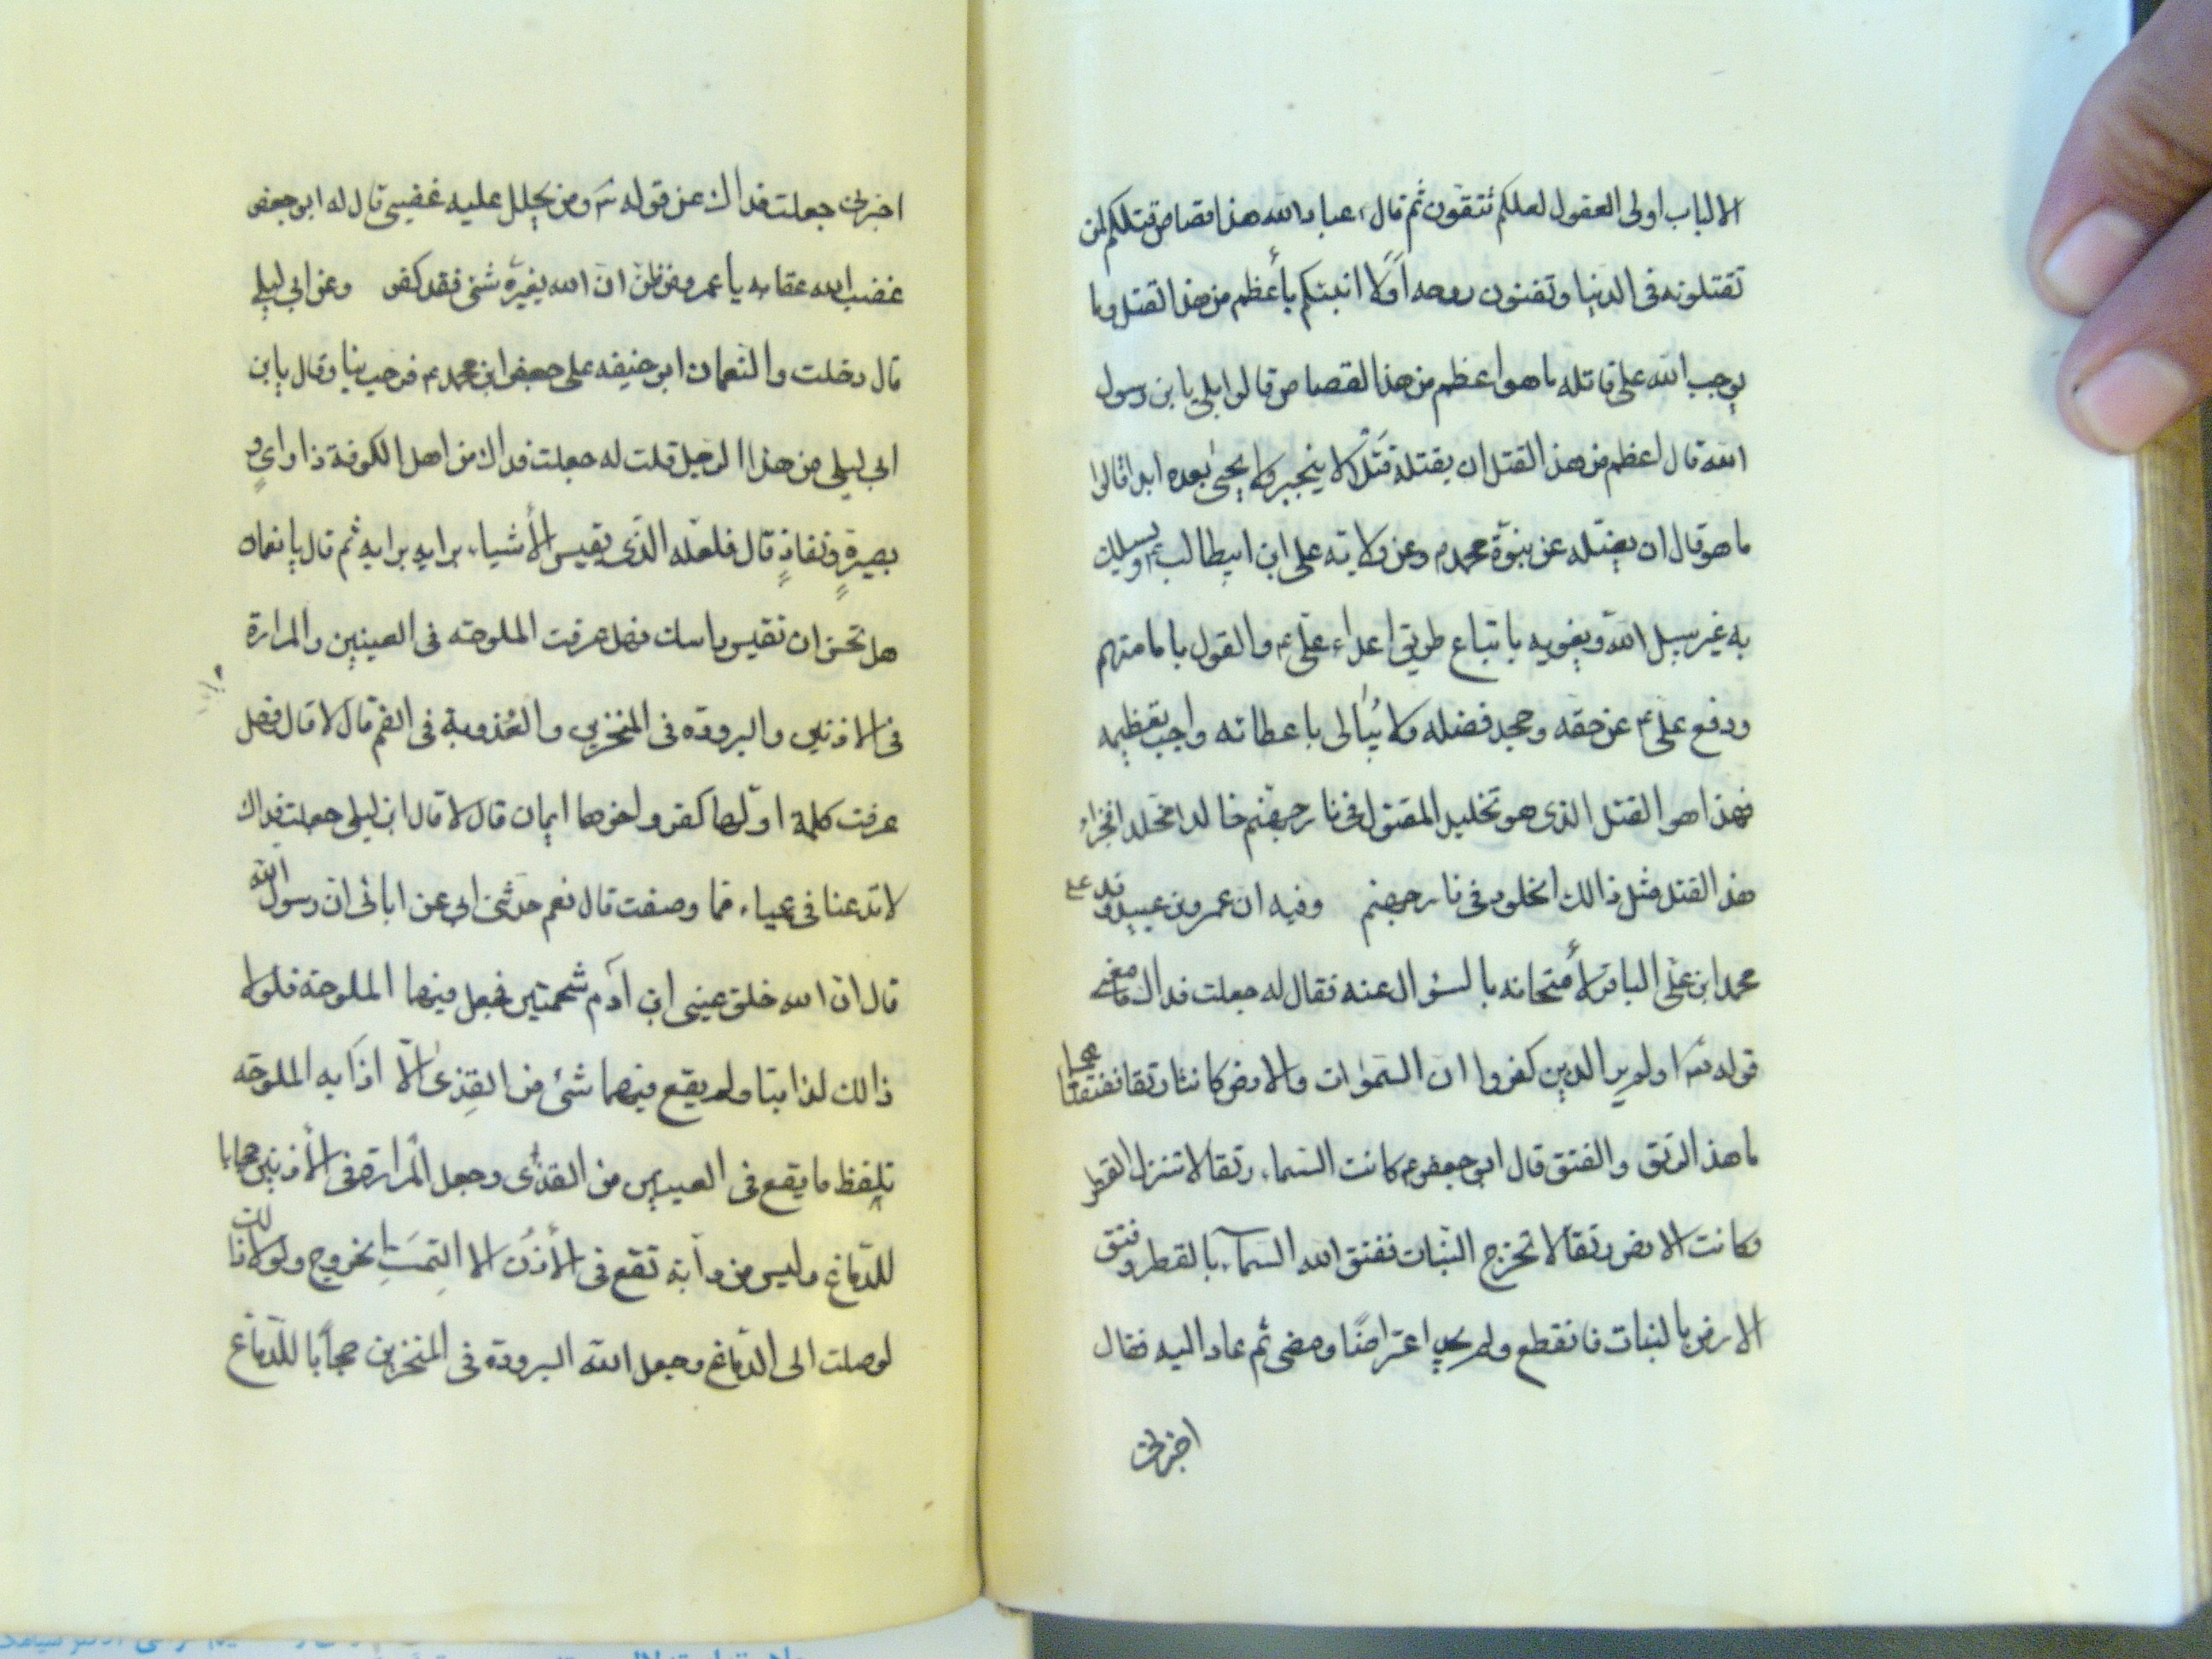 الالباب اولى العقول لعلكم تتقون ثم قال ع عباد الله هذا قصاص قتلكم لمن
تقتلونه فى الدنيا وتفنون روحه اولا انبئكم باعظم من هذا القتل وما
يوجب الله على قاتله ما هو اعظم من هذا القصاص قالوا بلى يا بن رسول
الله قال اعظم من هذا القتل ان يقتله قتلا لا ينجبر ولا يحيى بعده ابدا قالوا
ما هو قال ان يضله عن نبوة محمد وعن ولاية على ابن ابيطالب ويسلك
به غير سبيل الله ويغويه باتباع طريق اعداء على ع والقول بامامتهم
ودفع على ع عن حقه وجحد فضله ولا يبالى باعطائه واجب تعظيمه
فهذا هو القتل الذى هو تخليد المقتول فى نار جهنم خالدا مخلدا فجزاء
هذا القتل مثل ذالك الخلود فى نار جهنم وفيه ان عمرو بن عبيد وفد على
محمد ابن على الباقر لأمتحانه بالسؤال عنه فقال له جعلت فداك ما معنى
قوله تعـ اولم ير الذين كفروا ان السموات والارض كانتا رتقا ففتقناهما
ما هذا الرتق والفتق قال ابو جعفر ع كانت السماء رتقا لا تنزل القطر
وكانت الارض رتقا لا تخرج النبات ففتق الله السماء بالقطر وفتق
الارض بالنبات فانقطع ولم يجد اعتراضا ومضى ثم عاد اليه فقال
اخبرنى
اخبرنى جعلت فداك عن قوله تعـ ومن يحلل عليه غضبى قال له ابو جعفر
غضب الله عقابه يا عمرو من ظن ان الله يغيره شئ فقد كفر وعن ابى ليلى
قال دخلت والنعمان ابو حنيفه على جعفر ابن محمد ع فرحب بنا وقال يا بن
ابى ليلى من هذا الرجل قلت له جعلت فداك من اهل الكوفة ذا راى و
بصيرة ونفاذ قال فلعله الذى يقيس الأشياء برايه برايه ثم قال يا نعمان
هل تحسن ان تقيس راسك فهل عرفت الملوحة فى العينين والمرارة
فى الاذنين والبرودة فى المنخرين والعذوبة فى الفم قال لا قال فهل
عرفت كلمة اولها كفر واخرها ايمان قال لا قال ابن ليلى جعلت فداك
لا تدعنا فى عمياء مما وصفت قال نعم حدثنى ابى عن ابائى ان رسول الله
قال ان الله خلق عينى ابن آدم شحمتين فجعل فيهما الملوحة فلولا
ذالك لذابتا ولم يقع فيهما شئ من القذى الا اذابه الملوحه
تلفظ ما يقع فى العينين من القذى وجعل المرارة فى الأذنين حجابا
للدماغ وليس من دابة تقع فى الأذن الا التمست الخروج ولولا ذالك
لوصلت الى الدماغ وجعل الله البرودة فى المنخرين حجابا للدماغ